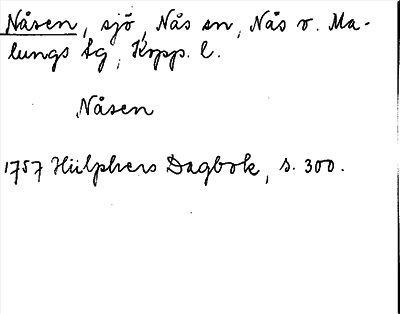 Nåsen, sjö, Nås sn, Nås o. Ma-
lungs tg, Kopp. l.
Nåsen
1757 Hülphers Dagbok, s. 300.